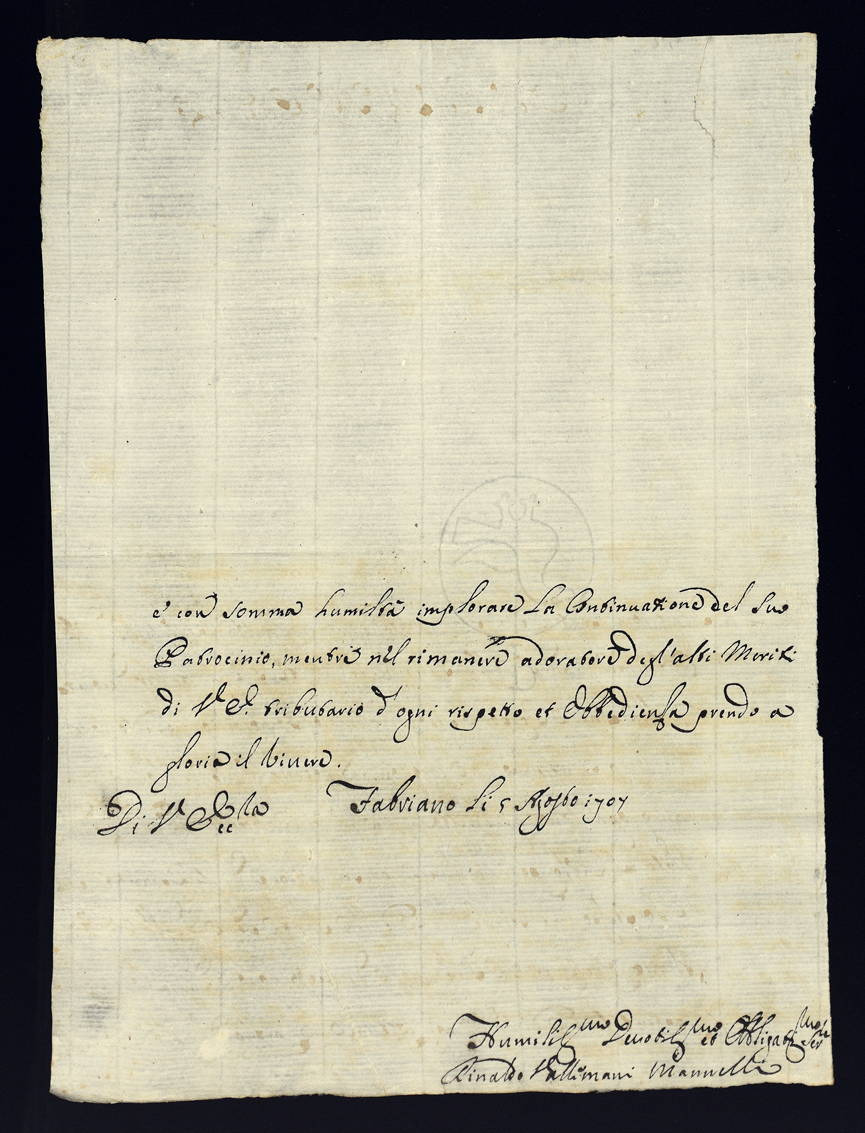 e con somma humiltà implorare la Continuatione del suo
Patrocinio, mentre nel rimanere adoratore degl'alti Meriti
di V. E. tributario d'ogni rispetto et Obbedienza prendo a
gloria il vivere.
Di V. Ecc.la Fabriano li 5 Agosto 1707
Humiliss.mo Devotiss.mo et Obligatiss.mo Ser.re
Rinaldo Vallemani Mannelli